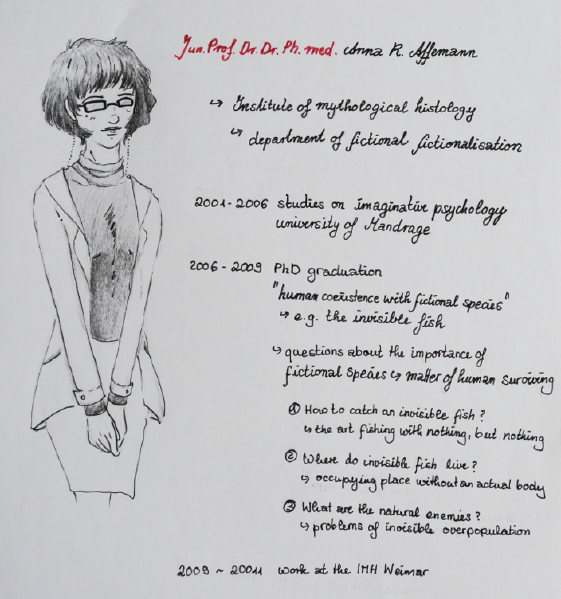 Jun. Prof. Dr. Dr. Ph. med. Anna R. Affemann
↳ Institute of mythological histology
↳ department of fictional fictionalisation
2001 - 2006 studies on imaginative psychology
university of Mandrage
2006 - 2009 PhD graduation
"human coexistence with fictional species"
↳ e.g. the invisible fish
↳ questions about the importance of
fictional species ↳ matter of human surviving
① How to catch an invisible fish?
↳ the art fishing with nothing, but nothing
② Where do invisible fish live?
↳ occupying place without an actual body
③ What are the natural enemies?
↳ problems of invisible overpopulation
2009 ~ 20011 work at the IMH Weimar